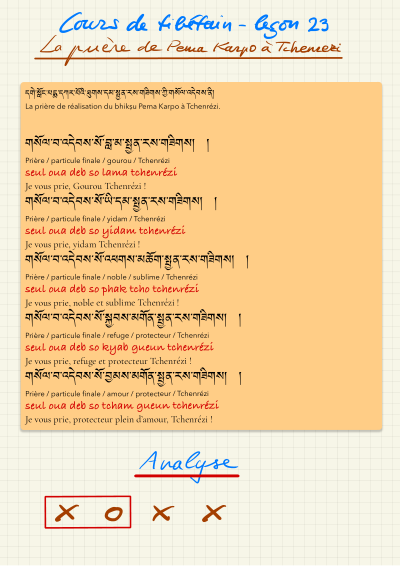 Cours de tibétain - leçon 23
La prière de Pema Karpo à Tchenrezi
དགེ་སློང་པདྨ་དཀར་པོའི་ཐུགས་དམ་སྤྱན་རས་གཟིགས་ཀྱི་གསོལ་འདེབས་ནི།
La prière de réalisation du bhikṣu Pema Karpo à Tchenrézi.
གསོལ་བ་འདེབས་སོ་བླ་མ་སྤྱན་རས་གཟིགས། །
Prière / particule finale / gourou / Tchenrézi
seul oua deb so lama tchenrézi
Je vous prie, Gourou Tchenrézi !
གསོལ་བ་འདེབས་སོ་ཡི་དམ་སྤྱན་རས་གཟིགས། །
Prière / particule finale / yidam / Tchenrézi
seul oua deb so yidam tchenrézi
Je vous prie, yidam Tchenrézi !
གསོལ་བ་འདེབས་སོ་འཕགས་མཆོག་སྤྱན་རས་གཟིགས། །
Prière / particule finale / noble / sublime / Tchenrézi
seul oua deb so phak tcho tchenrézi
Je vous prie, noble et sublime Tchenrézi !
གསོལ་བ་འདེབས་སོ་སྐྱབས་མགོན་སྤྱན་རས་གཟིགས། །
Prière / particule finale / refuge / protecteur / Tchenrézi
seul oua deb so kyab gueun tchenrézi
Je vous prie, refuge et protecteur Tchenrézi !
གསོལ་བ་འདེབས་སོ་བྱམས་མགོན་སྤྱན་རས་གཟིགས། །
Prière / particule finale / amour / protecteur / Tchenrézi
seul oua deb so tcham gueun tchenrézi
Je vous prie, protecteur plein d'amour, Tchenrézi !
Analyse
x o x x